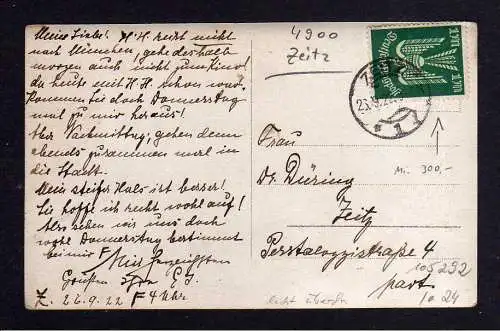 Meine Liebe! H. H. reist nicht
nach München, gehe deshalb
morgen auch nicht zum Kino!
da heute mit H. H. schon war.
Kommen Sie doch Donnerstag
mal zu mir heraus!
Nachmittag, gehen dann
abends zusammen mal in
die Stadt.
Mein steifer Hals ist besser!
Sie hoffe ich recht wohl auf!
Also sehen wir uns doch
wohl Donnerstag bestimmt
bei mir
Grüßen
Z. 26.9.22 4 Uhr
4900
Zeitz
Deutsches Reich
1 M
1 M
1
Mi. 300,-
Frau
Dr. Düring
Zeitz
Pestalozzistraße 4
part.
105292
10 24